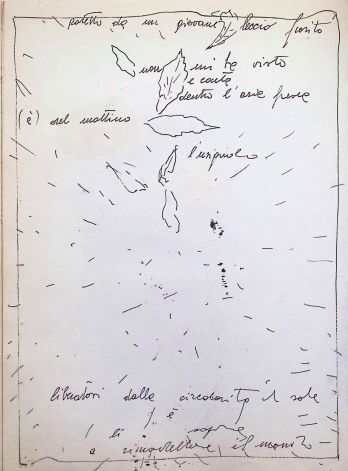 protetto da un giovane leccio fiorito
non mi ha visto
e canta
dentro l'aria persa
(è) nel mattino
l'usignolo
liberatosi dalla circolarità il sole
è
li sopra
a rimodellare il mondo